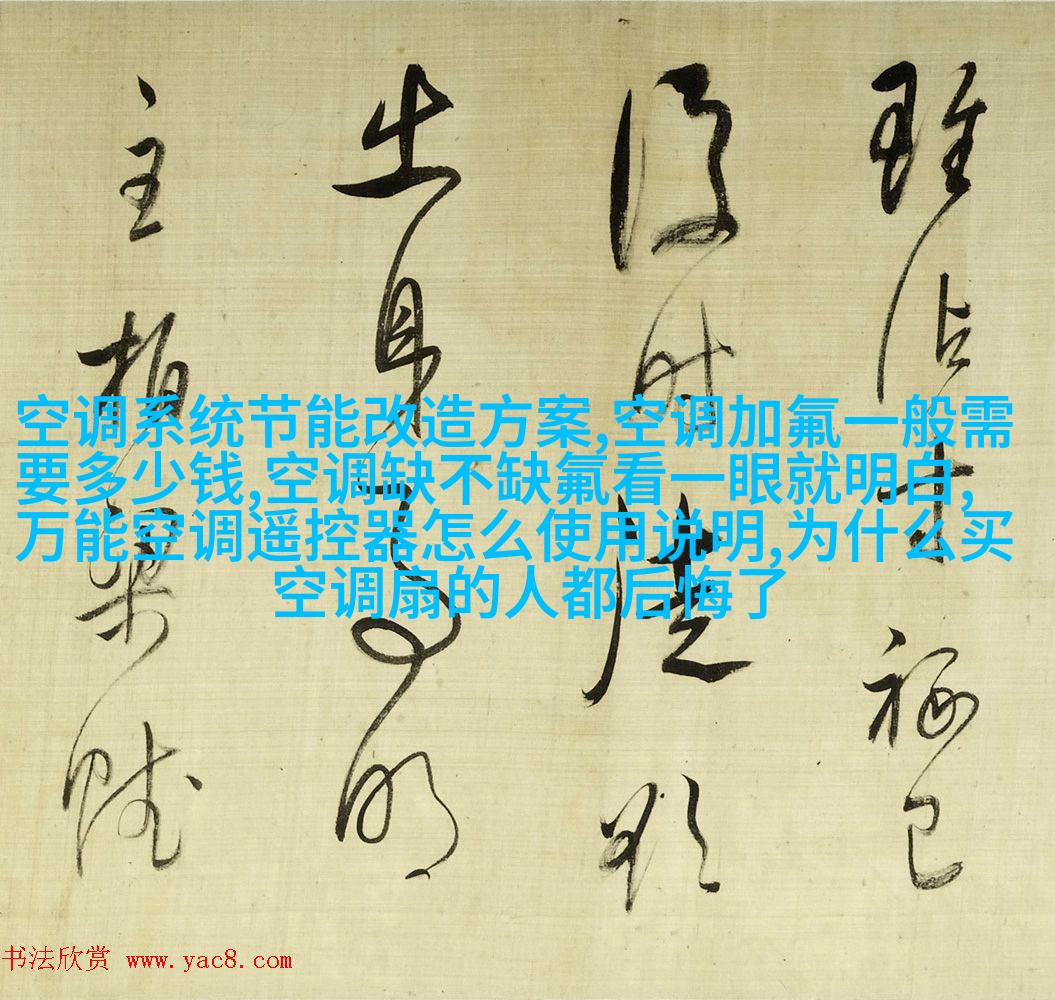 出身事明
主柏梁
空调系统节能改造方案,空调加氟一般需
要多少钱,空调缺不缺氟看一眼就明白,
万能空调遥控器怎么使用说明,为什么买
空调扇的人都后悔了
书法欣赏 www.yac8.com